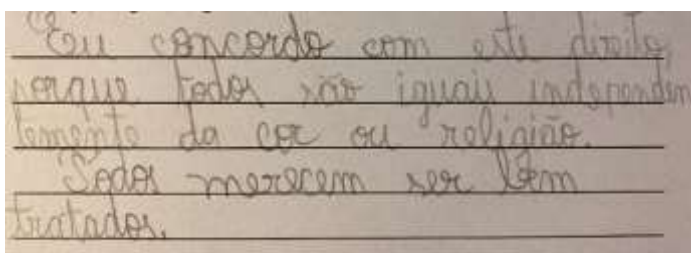 Eu concordo com este direito
porque todos são iguais independen
temente da cor ou religião.
Todos merecem ser bem
tratados.